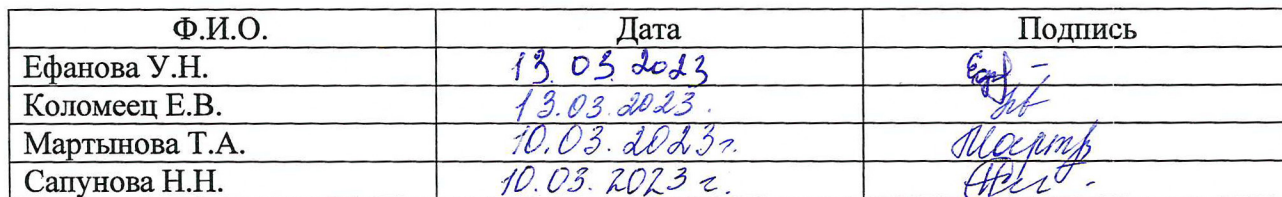 Ф.И.О. Дата Подпись
Ефанова У.Н. 13.03.2023
Коломеец Е.В. 13.03.2023.
Мартынова Т.А. 10.03.2023г.
Сапунова Н.Н. 10.03.2023 г.